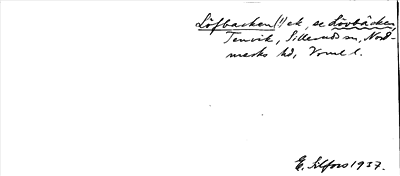 Löfbacken (!) ek, se Lövbäcken,
Tenvik, Sillerud sn, Nord-
marks hd, Vrml l.
E. Ulfors 1937.